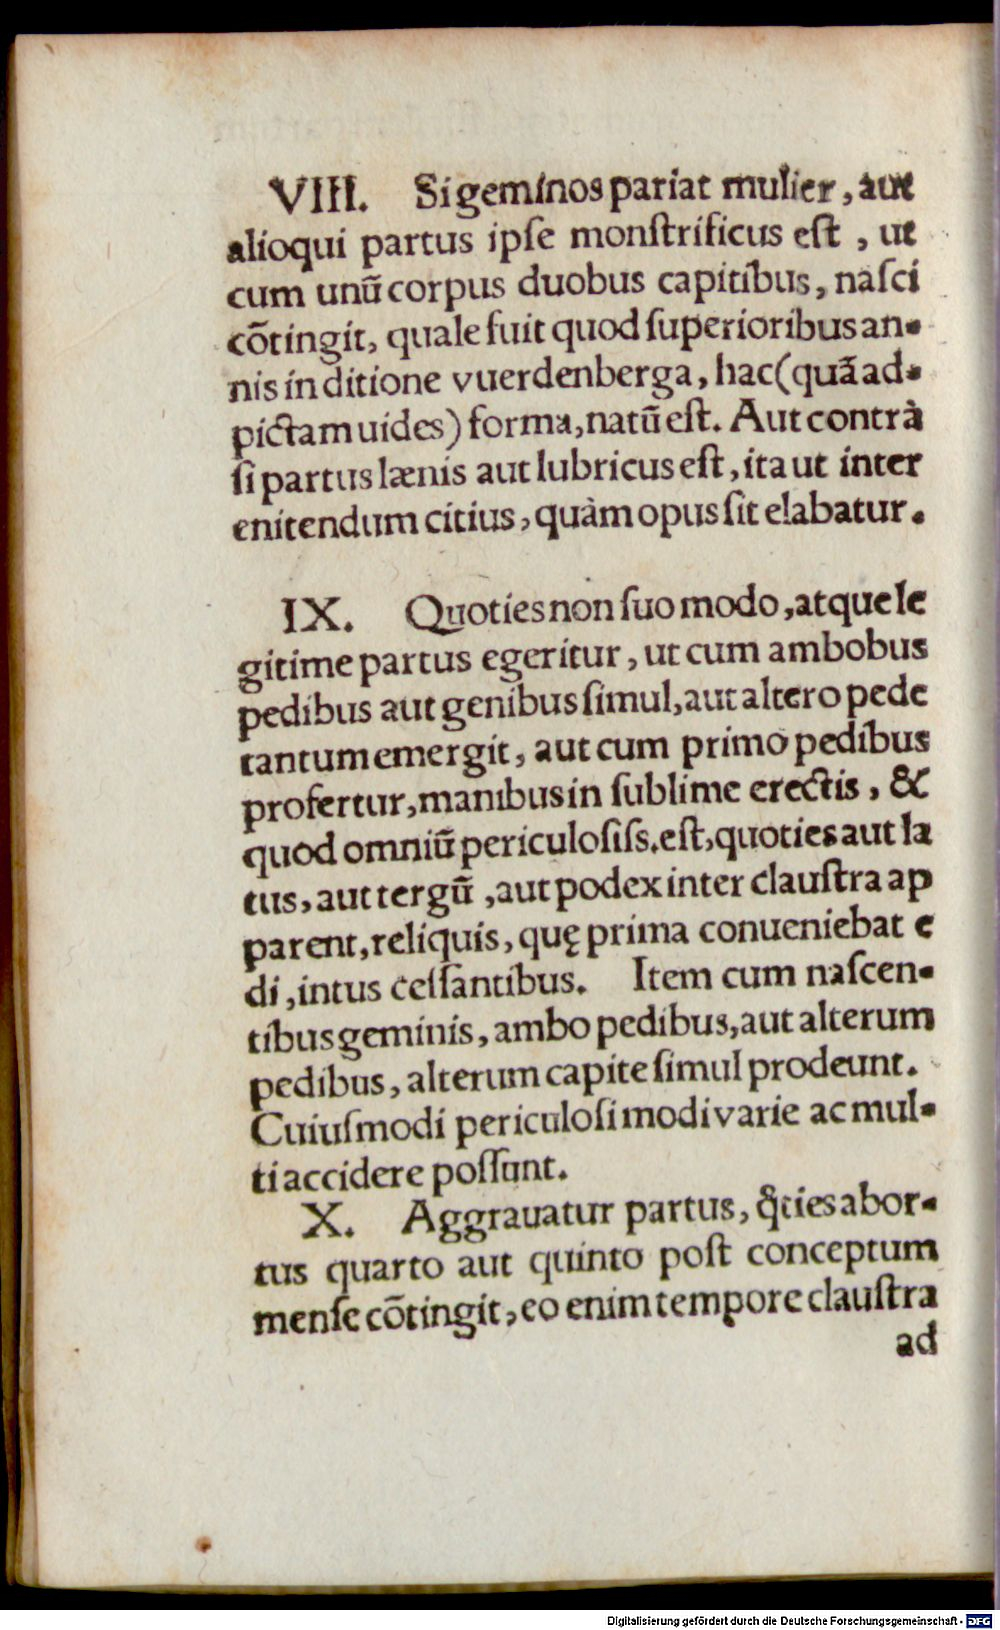 VIII. Si geminos pariat mulier, aut
alioqui partus ipſe monſtrificus eſt, ut
cum unũ corpus duobus capitibus, naſci
cõtingit, quale fuit quod ſuperioribus an-
nis in ditione vuerdenberga, hac (quã ad-
pictam uides) forma, natũ eſt. Aut contrà
ſi partus lænis aut lubricus eſt, ita ut inter
enitendum citius, quàm opus ſit elabatur.
IX. Quoties non ſuo modo, atque le
gitime partus egeritur, ut cum ambobus
pedibus aut genibus ſimul, aut altero pede
tantum emergit, aut cum primo pedibus
profertur, manibus in ſublime erectis, &
quod omniũ periculoſiſs. eſt, quoties aut la
tus, aut tergũ, aut podex inter clauſtra ap
parent, reliquis, quę prima conueniebat e
di, intus ceſſantibus. Item cum naſcen-
tibus geminis, ambo pedibus, aut alterum
pedibus, alterum capite ſimul prodeunt.
Cuiuſmodi periculoſi modi varie ac mul-
ti accidere poſſunt.
X. Aggrauatur partus, q̃ties abor-
tus quarto aut quinto poſt conceptum
menſe cõtingit, eo enim tempore clauſtra
ad
Digitalisierung gefördert durch die Deutsche Forschungsgemeinschaft - DFG